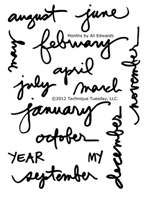 august june
may
Months by Ali Edwards
february
april
july march
november
©2012 Technique Tuesday, LLC.
january
october
december
YEAR MY
september